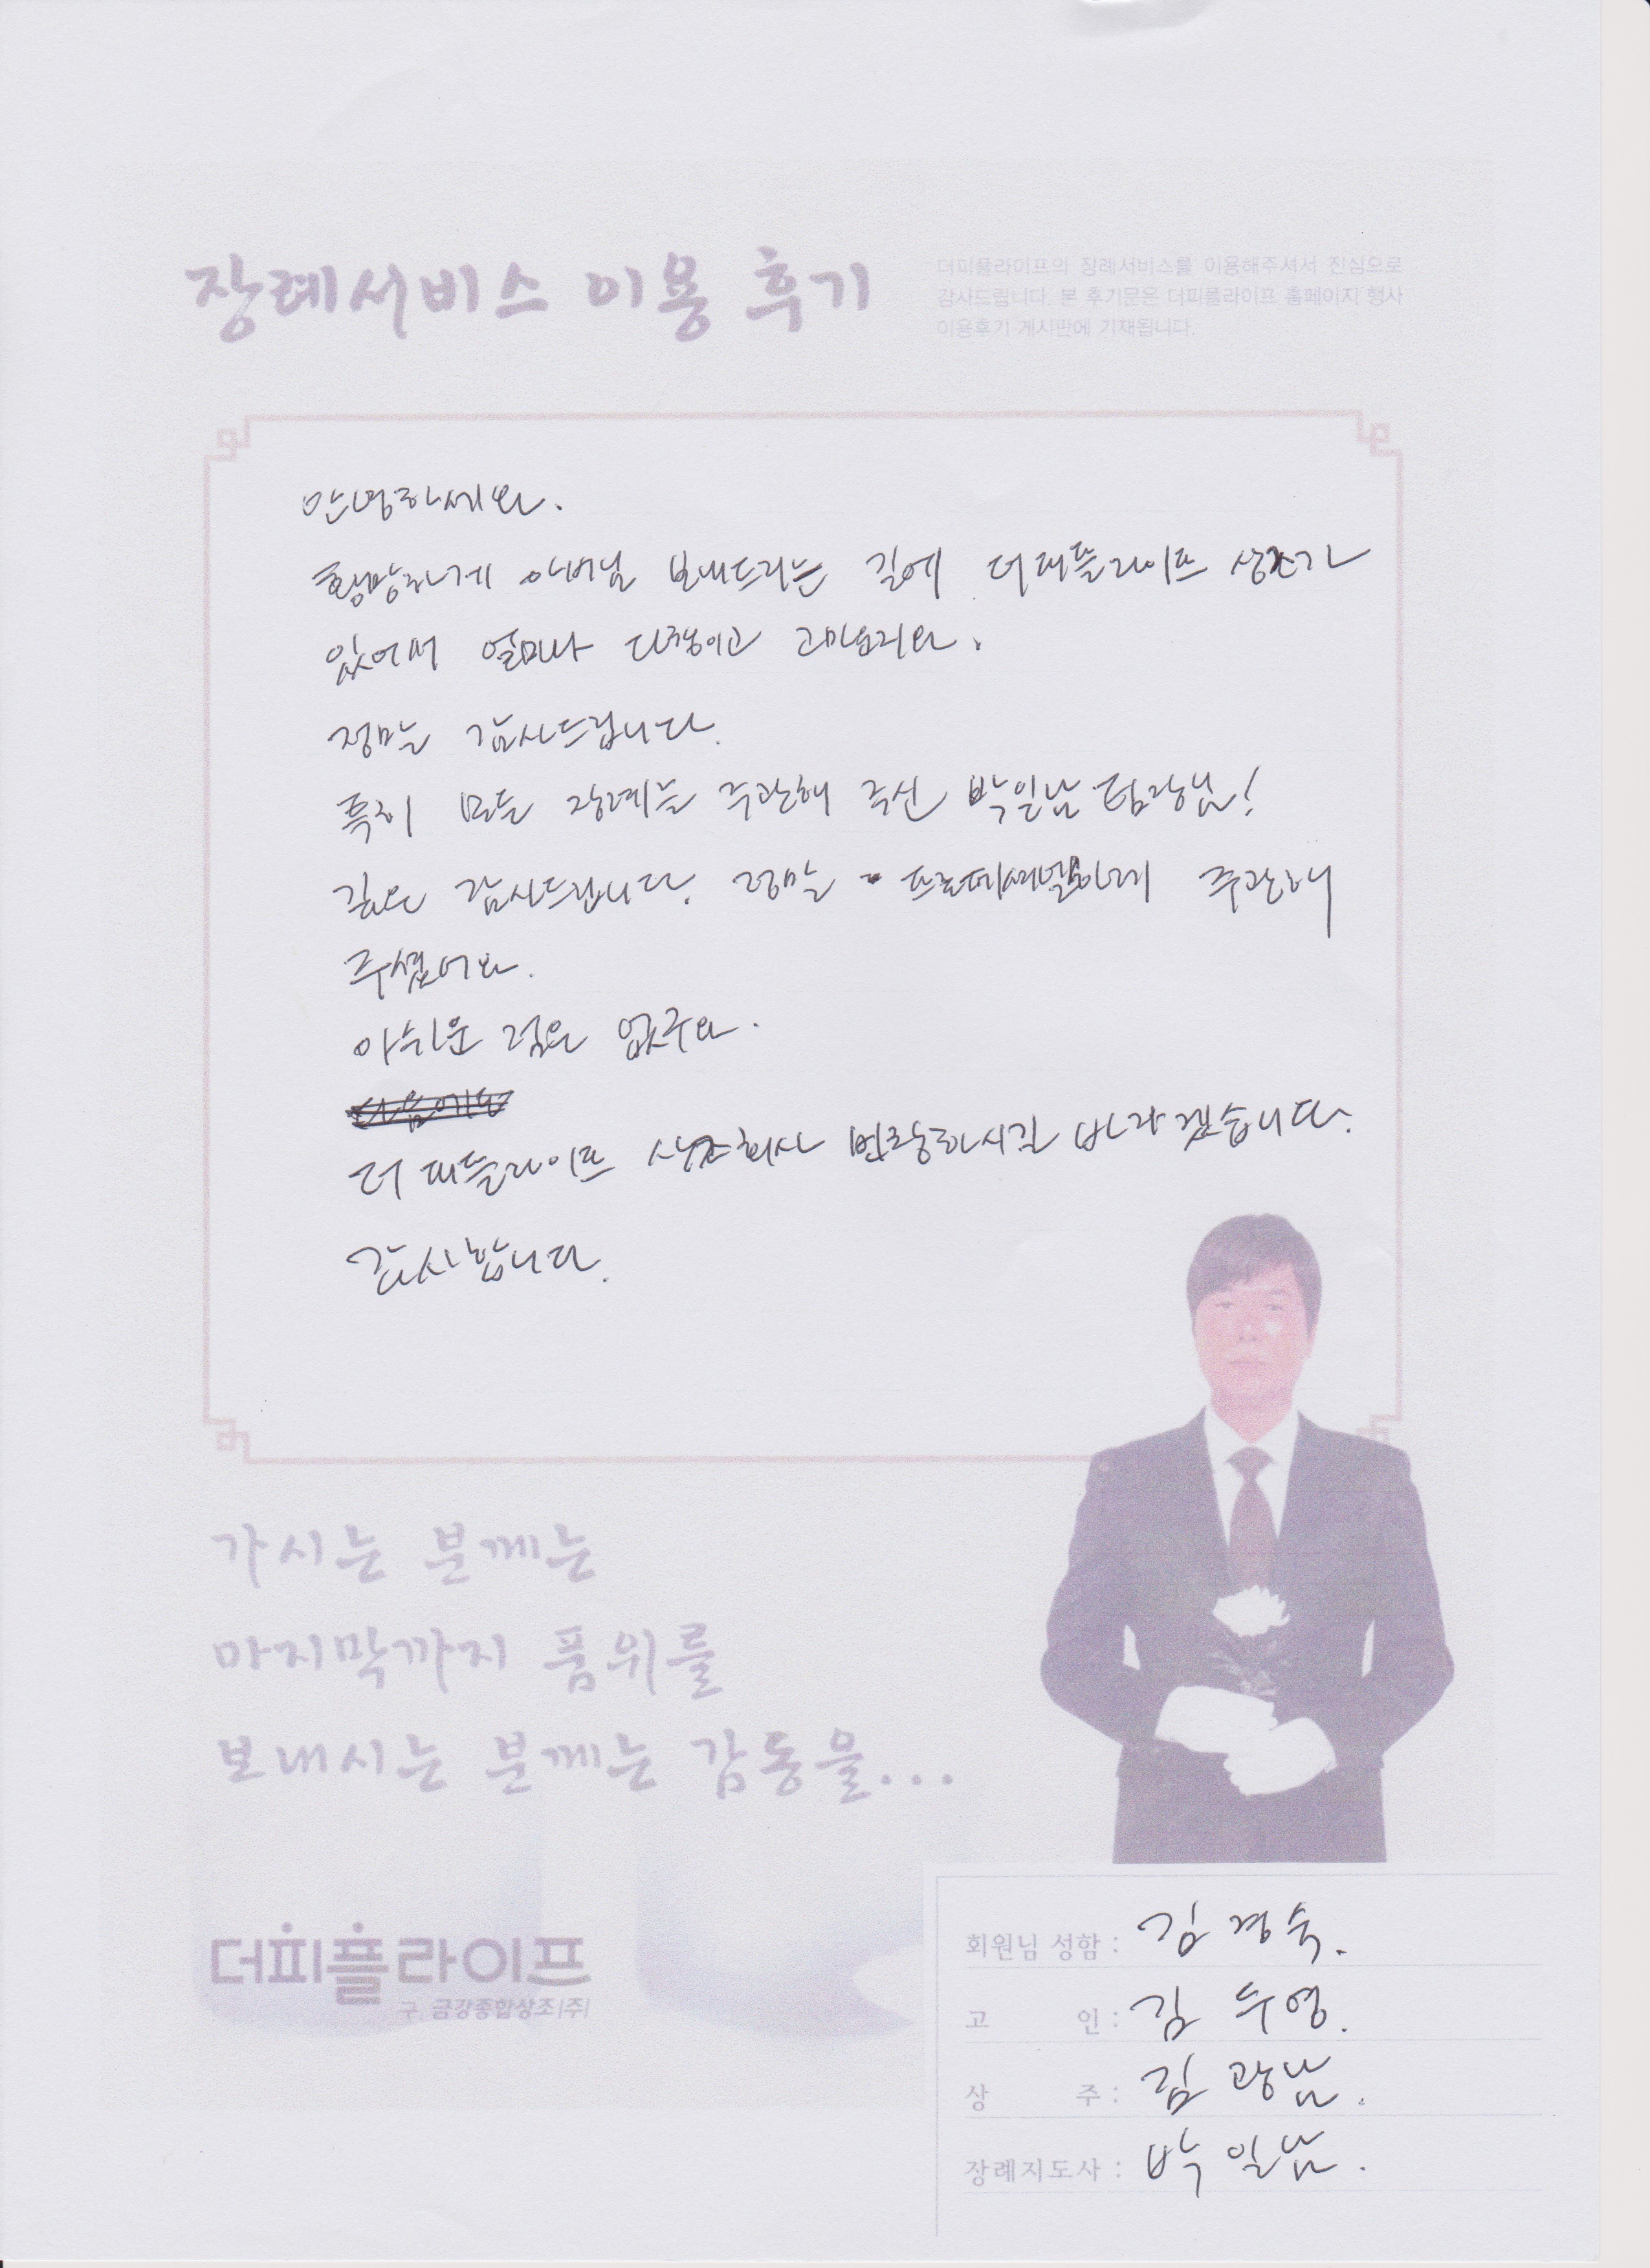 장례서비스 이용 후기
더피플라이프의 장례서비스를 이용해주셔서 진심으로
감사드립니다. 본 후기문은 더피플라이프 홈페이지 행사
이용후기 게시판에 기재됩니다.
안녕하세요.
황망하게 아버님 보내드리는 길에 더피플라이프 상조가
있어서 얼마나 다행이고 고마운지요.
정말 감사드립니다.
특히 모든 장례를 주관해 주신 박일남 팀장님!
깊은 감사드립니다. 정말 프로페셔널하게 주관해
주셨어요.
아쉬운 점은 없구요.
다음에도
더 피플라이프 상조회사 번창하시길 바라겠습니다.
감사합니다.
가시는 분께는
마지막까지 품위를
보내시는 분께는 감동을...
더피플라이프
구. 금강종합상조(주)
회원님 성함 : 김경숙.
고 인 : 김두영.
상 주 : 김광남.
장례지도사 : 박일남.